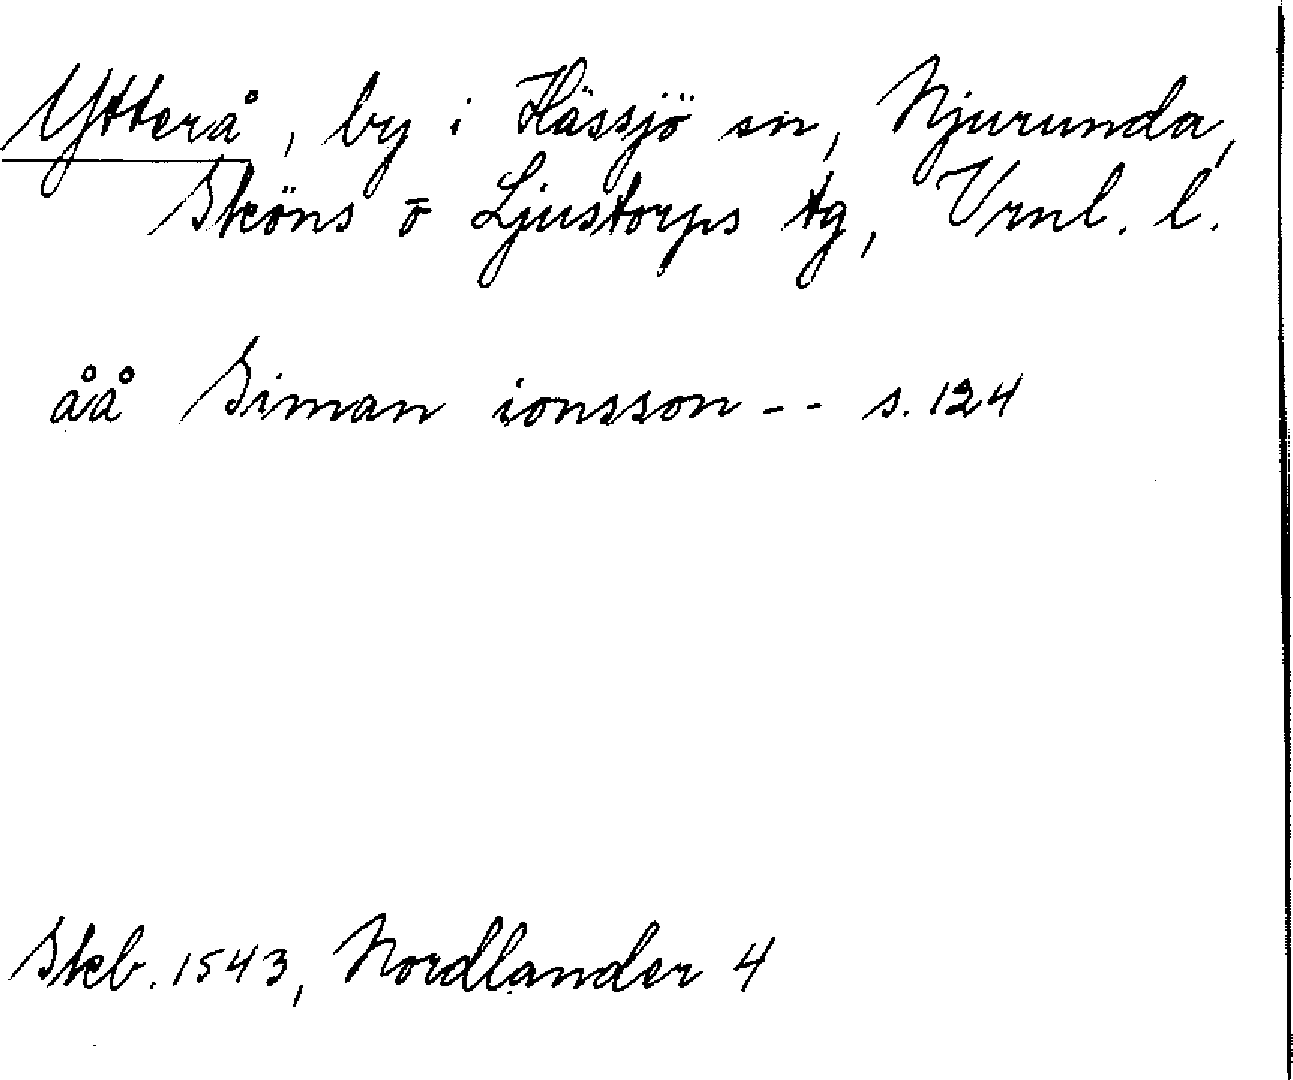 Ytterå, by i Hässjö sn, Njurunda,
Sköns o Ljustorps tg, Vrnl. l.
åå Siman ionsson -- s. 124
Skb. 1543, Nordlander 4